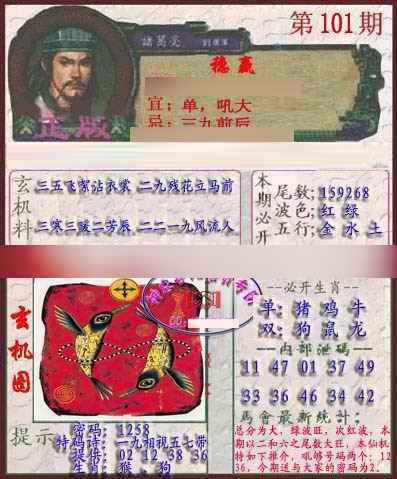 第101期
諸葛亮
稳赢
宜：单，吼大
忌：三九前后
正版
玄机料
三五飞絮沾衣裳 二九残花立马前
三寒三暖二芳辰 二二一九风流人
本期必开
尾数：159268
波色：红 绿
五行：金 水 土
玄机图
--必开生肖--
单：猪 鸡 牛
双：狗 鼠 龙
--内部泄码--
11 47 01 37 49
33 36 46 34 42
馬會最新统计：
总分为大，绿波旺，次红波，本期以二和六之尾数大旺，本仙机特如下推介，吼够号码两个：1236，今期送与大家的密码为2.
提示
密码：1258
特码诗：一九相视五七带
提榜：02 12 38 36
生肖：猴．狗